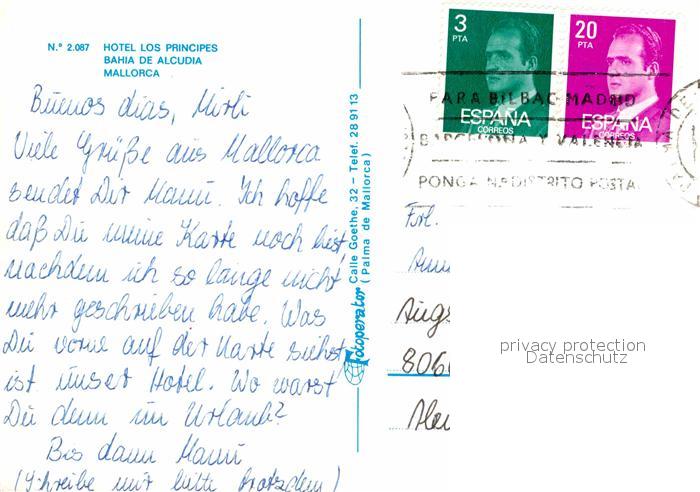 N.º 2.087 HOTEL LOS PRINCIPES
BAHIA DE ALCUDIA
MALLORCA
Buenos dias, Mirli
Viele Grüße aus Mallorca
sendet Dir Manü. Ich hoffe
daß Du meine Karte noch liest,
nachdem ich so lange nicht
mehr geschrieben habe. Was
Du vorne auf der Karte siehst
ist unser Hotel. Wo warst
Du denn im Urlaub?
Bis dann Manü
(Schreibe mir bitte trotzdem)
Fotoperator Calle Goethe, 32 - Telef. 28 91 13
(Palma de Mallorca)
3 PTA
ESPAÑA
CORREOS
20 PTA
ESPAÑA
CORREOS
PARA BILBAO MADRID
BARCELONA Y VALENCIA
PONGA N.º DISTRITO POSTA
Frl.
Augs
806
privacy protection
Datenschutz